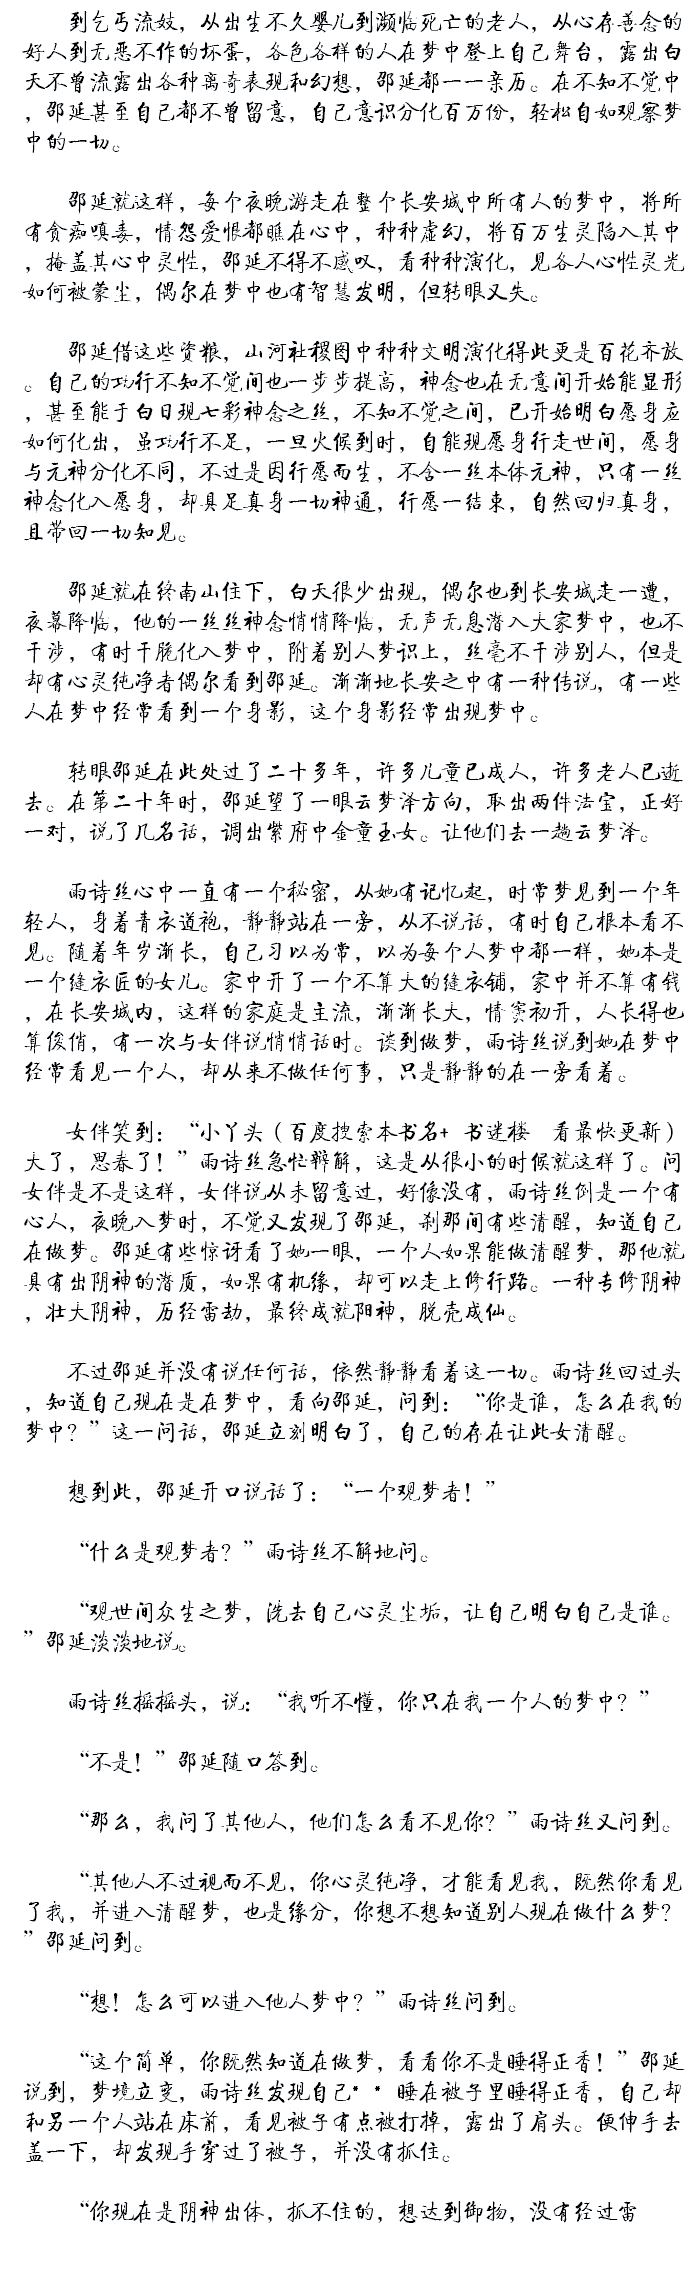 到乞丐流妓，从出生不久婴儿到濒临死亡的老人，从心存善念的
好人到无恶不作的坏蛋，各色各样的人在梦中登上自己舞台，露出白
天不曾流露出各种离奇表现和幻想，邵延都一一亲历。在不知不觉中
，邵延甚至自己都不曾留意，自己意识分化百万份，轻松自如观察梦
中的一切。
邵延就这样，每个夜晚游走在整个长安城中所有人的梦中，将所
有贪痴嗔毒，情怨爱恨都瞧在心中，种种虚幻，将百万生灵陷入其中
，掩盖其心中灵性，邵延不得不感叹，看种种演化，见各人心性灵光
如何被蒙尘，偶尔在梦中也有智慧发明，但转眼又失。
邵延借这些资粮，山河社稷图中种种文明演化得此更是百花齐放
。自己的功行不知不觉间也一步步提高，神念也在无意间开始能显形
，甚至能于白日现七彩神念之丝，不知不觉之间，已开始明白愿身应
如何化出，虽功行不足，一旦火候到时，自能现愿身行走世间，愿身
与元神分化不同，不过是因行愿而生，不含一丝本体元神，只有一丝
神念化入愿身，却具足真身一切神通，行愿一结束，自然回归真身，
且带回一切知见。
邵延就在终南山住下，白天很少出现，偶尔也到长安城走一遭，
夜幕降临，他的一丝丝神念悄悄降临，无声无息潜入大家梦中，也不
干涉，有时干脆化入梦中，附着别人梦识上，丝毫不干涉别人，但是
却有心灵纯净者偶尔看到邵延。渐渐地长安之中有一种传说，有一些
人在梦中经常看到一个身影，这个身影经常出现梦中。
转眼邵延在此处过了二十多年，许多儿童已成人，许多老人已逝
去。在第二十年时，邵延望了一眼云梦泽方向，取出两件法宝，正好
一对，说了几名话，调出紫府中金童玉女。让他们去一趟云梦泽。
雨诗丝心中一直有一个秘密，从她有记忆起，时常梦见到一个年
轻人，身着青衣道袍，静静站在一旁，从不说话，有时自己根本看不
见。随着年岁渐长，自己习以为常，以为每个人梦中都一样，她本是
一个缝衣匠的女儿。家中开了一个不算大的缝衣铺，家中并不算有钱
，在长安城内，这样的家庭是主流，渐渐长大，情窦初开，人长得也
算俊俏，有一次与女伴说悄悄话时。谈到做梦，雨诗丝说到她在梦中
经常看见一个人，却从来不做任何事，只是静静的在一旁看着。
女伴笑到：“小丫头（百度搜索本书名+ 书迷楼 看最快更新）
大了，思春了！”雨诗丝急忙辩解，这是从很小的时候就这样了。问
女伴是不是这样，女伴说从未留意过，好像没有，雨诗丝倒是一个有
心人，夜晚入梦时，不觉又发现了邵延，刹那间有些清醒，知道自己
在做梦。邵延有些惊讶看了她一眼，一个人如果能做清醒梦，那他就
具有出阴神的潜质，如果有机缘，却可以走上修行路。一种专修阴神
，壮大阴神，历经雷劫，最终成就阳神，脱壳成仙。
不过邵延并没有说任何话，依然静静看着这一切。雨诗丝回过头
，知道自己现在是在梦中，看向邵延，问到：“你是谁，怎么在我的
梦中？”这一问话，邵延立刻明白了，自己的存在让此女清醒。
想到此，邵延开口说话了：“一个观梦者！”
“什么是观梦者？”雨诗丝不解地问。
“观世间众生之梦，洗去自己心灵尘垢，让自己明白自己是谁。
”邵延淡淡地说。
雨诗丝摇摇头，说：“我听不懂，你只在我一个人的梦中？”
“不是！”邵延随口答到。
“那么，我问了其他人，他们怎么看不见你？”雨诗丝又问到。
“其他人不过视而不见，你心灵纯净，才能看见我，既然你看见
了我，并进入清醒梦，也是缘分，你想不想知道别人现在做什么梦？
”邵延问到。
“想！怎么可以进入他人梦中？”雨诗丝问到。
“这个简单，你既然知道在做梦，看看你不是睡得正香！”邵延
说到，梦境立变，雨诗丝发现自己**睡在被子里睡得正香，自己却
和另一个人站在床前，看见被子有点被打掉，露出了肩头。便伸手去
盖一下，却发现手穿过了被子，并没有抓住。
“你现在是阴神出体，抓不住的，想达到御物，没有经过雷